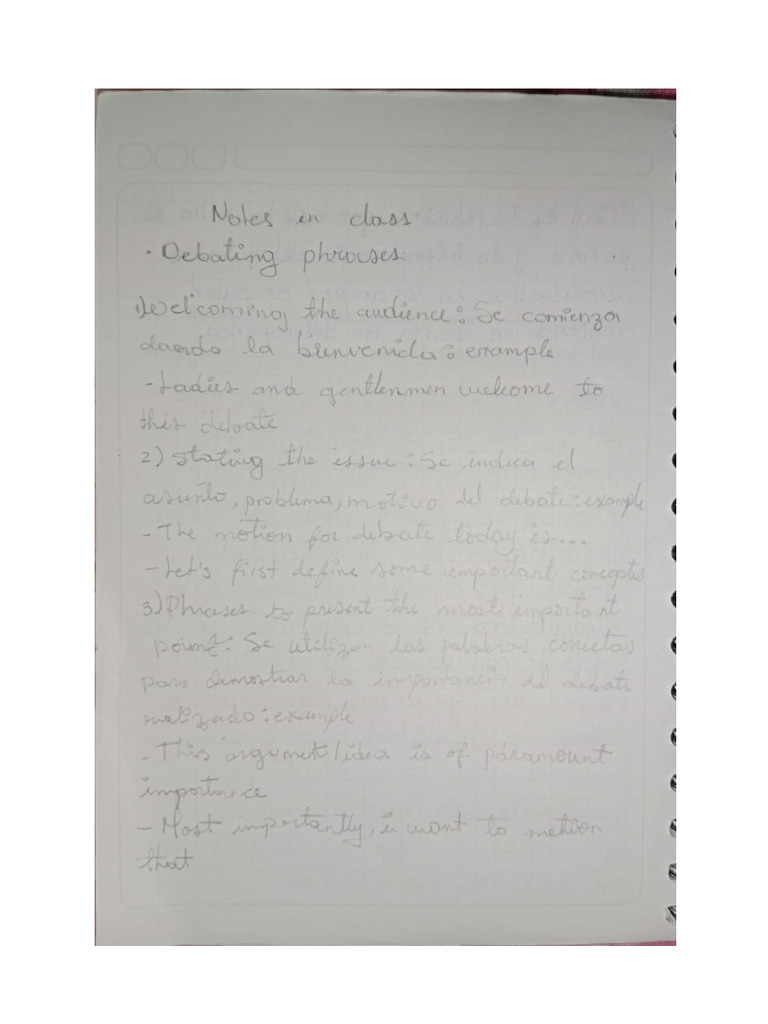 Notes in class
· Debating phrases
1) Welcoming the audience: Se comienza
dando la bienvenida: example
- Ladies and gentlenmen welcome to
this debate
2) Stating the issue: Se indica el
asunto, problema, motivo del debate: example
- The motion for debate today is....
- Let's first define some important concepts
3) Phrases to present the most important
point: Se utilizan las palabras
para demostrar la importancia del debate
realizado: example
- This argument/idea is of paramount
importance
- Most importantly, i want to metion
that